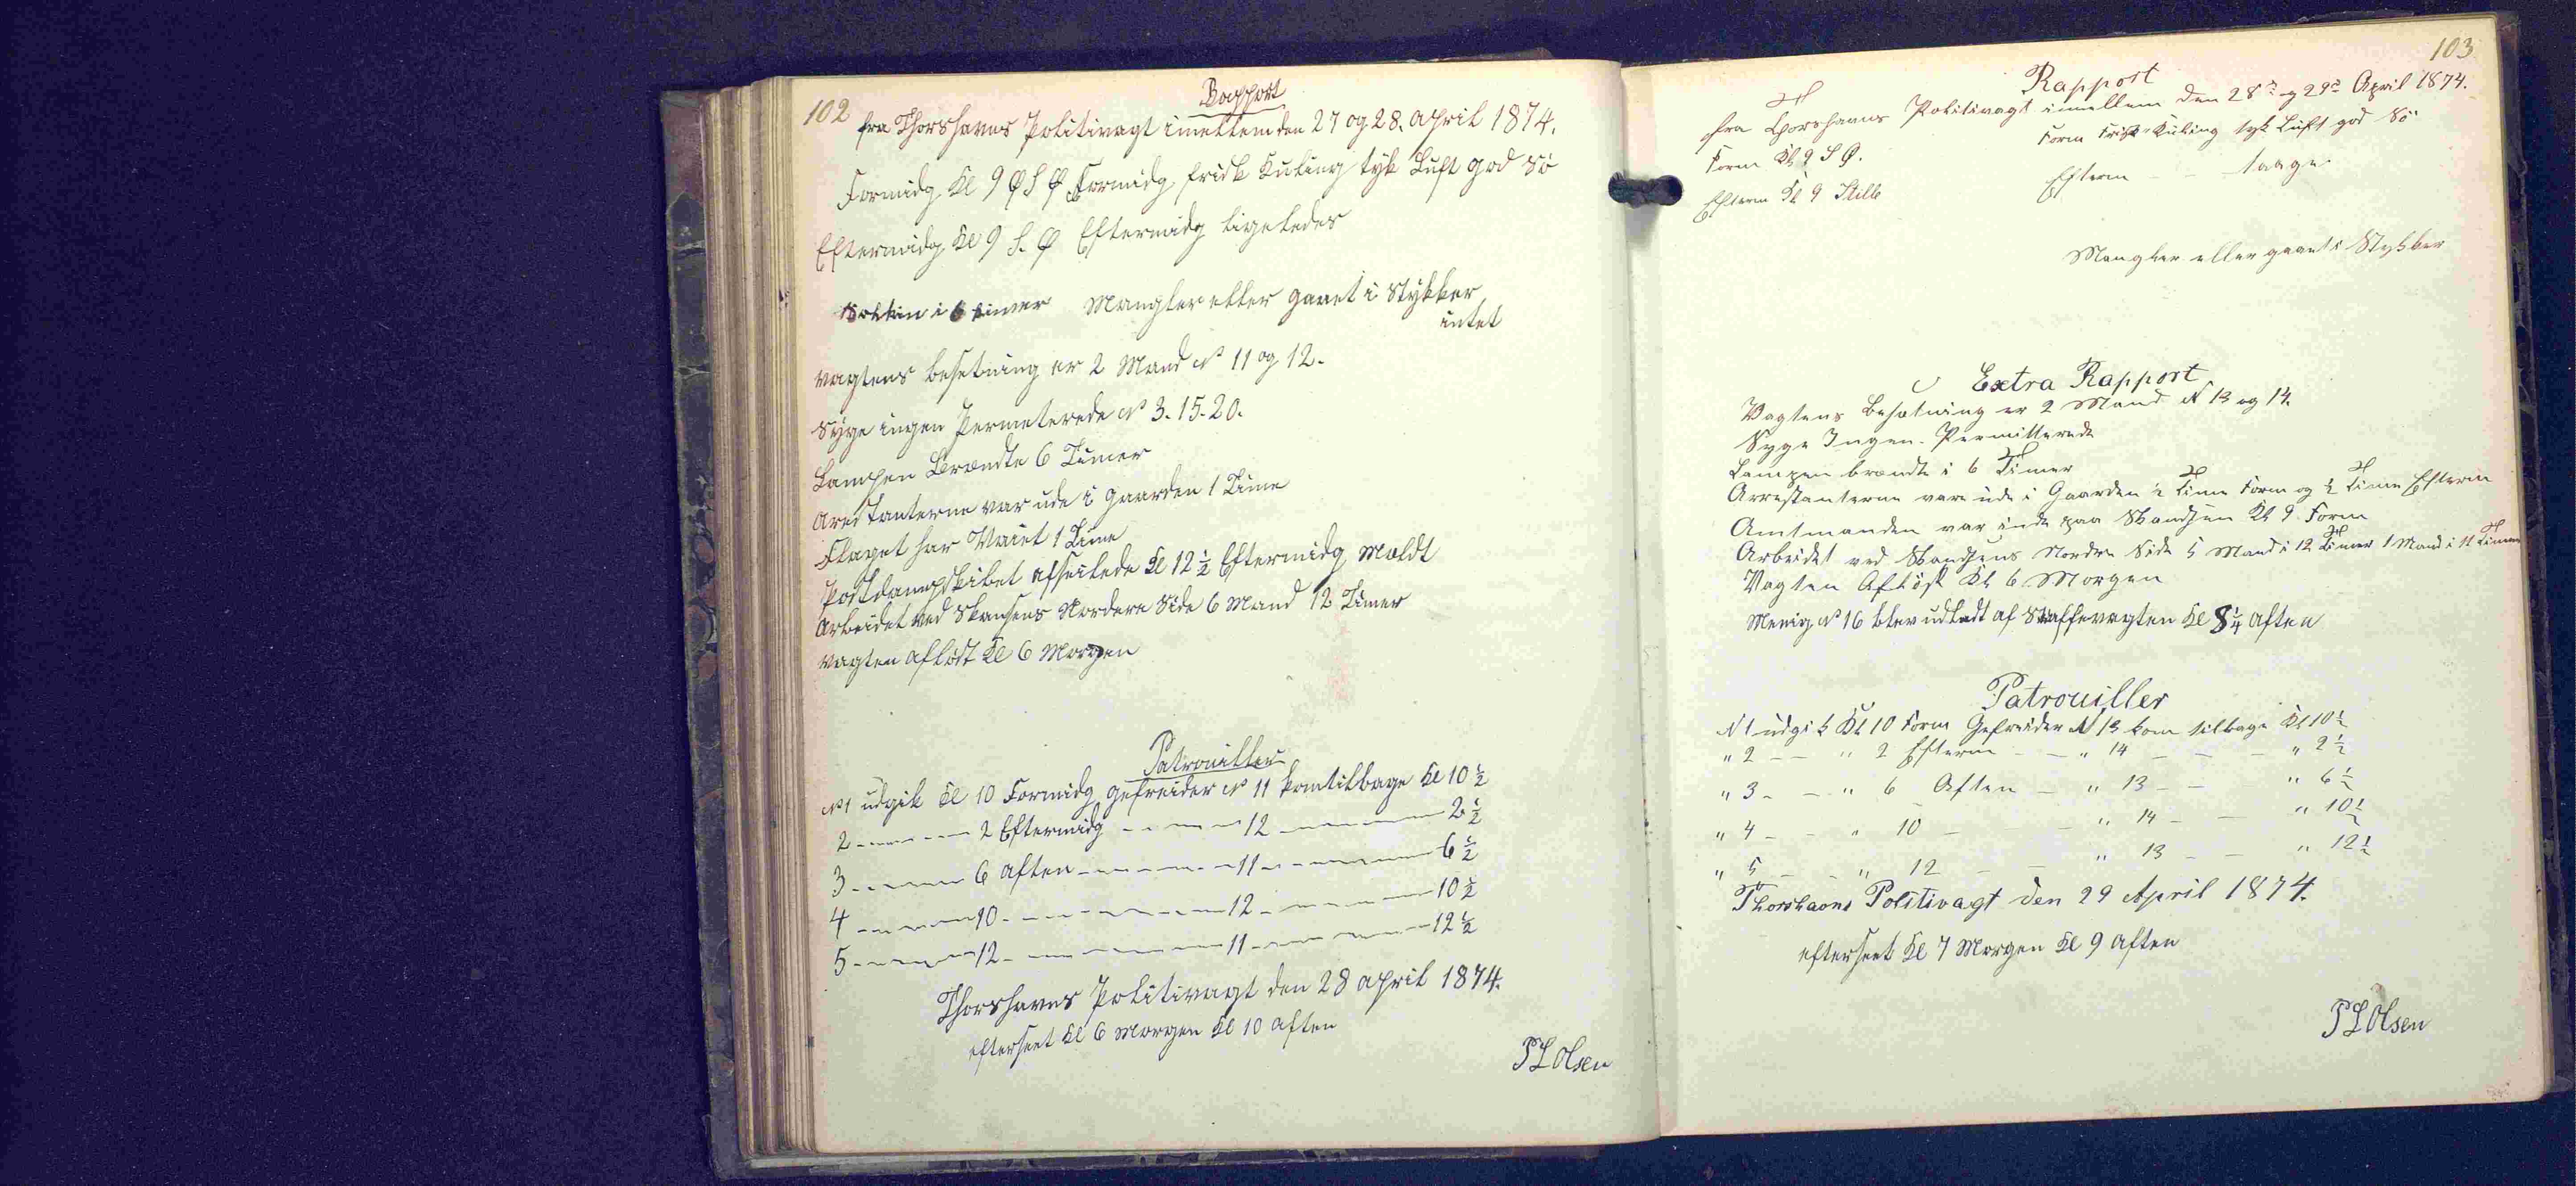 102
Rapport
fra Thorshavns Politivagt imellem den 27 og 28. April 1874.
Formidg Kl 9 Ø S Ø Formidg frisk Kuling tyk Luft god Sö
Eftermidg Kl 9 S. Ø Eftermidg ligeledes
i 6 timer Mangler eller gaaet i Stykker
intet
Vagtens besetning er 2 Mand No 11 og 12.
Syge ingen Permeterede No 3. 15. 20.
Lampen Brændte 6 Timer
Arestanterne var ude i Gaarden 1 Time
Flaget har Vaiet 1 Time
Postdampskibet afseilede Kl 12 1/2 Eftermidg Meldt
Arbeidet ved Skansens Nordere Side 6 Mand 12 Timer
Vagten aflöst Kl 6 Morgen
Patrouiller
No 1 udgik Kl 10 Formidg gefreider No 11 kom tilbage Kl 10 1/2
2 - - - 2 Eftermidg - - - 12 - - - 2 1/2
3 - - - 6 Aften - - - 11 - - - 6 1/2
4 - - - 10 - - - 12 - - - 10 1/2
5 - - - 12 - - - 11 - - - 12 1/2
Thorshavns Politivagt den 28 April 1874.
efterseet Kl 6 Morgen Kl 10 Aften
P L Olsen
103
Rapport
fra Thorshavns Politivagt imellem den 28de og 29de April 1874.
Form Kl 9 S Ø. Form Frisk Kuling tyk Luft god Sö
Efterm Kl 9 Stille Efterm - - taage
Mangler eller gaaet i Stykker
Extra Rapport
Vagtens Besætning er 2 Mand N 13 og 14.
Syge Ingen. Permitterede
Lampen brændte i 6 Timer
Arrestanterne vare ude i Gaarden 1/2 Time Form og 1/2 Time Efterm
Amtmanden var inde paa Skandsen Kl 9 Form
Arbeidet ved Skandsens Nordre Side 5 Mand i 12 Timer 1 Mand i 11 Timer
Vagten Aflöst Kl 6 Morgen
Menig No 16 blev udladt af Straffevagten Kl 8 1/4 Aften
Patrouiller
N 1 udgik Kl 10 Form Gefreider N 13 kom tilbage Kl 10 1/2
" 2 - - " 2 Efterm - - " 14 - - - " 2 1/2
" 3 - - " 6 Aften - " 13 - - " 6 1/2
" 4 - - " 10 - - " 14 - - " 10 1/2
" 5 - - " 12 - - " 13 - - " 12 1/2
Thorshavns Politivagt den 29 April 1874.
efterseet Kl 7 Morgen Kl 9 Aften
P L Olsen